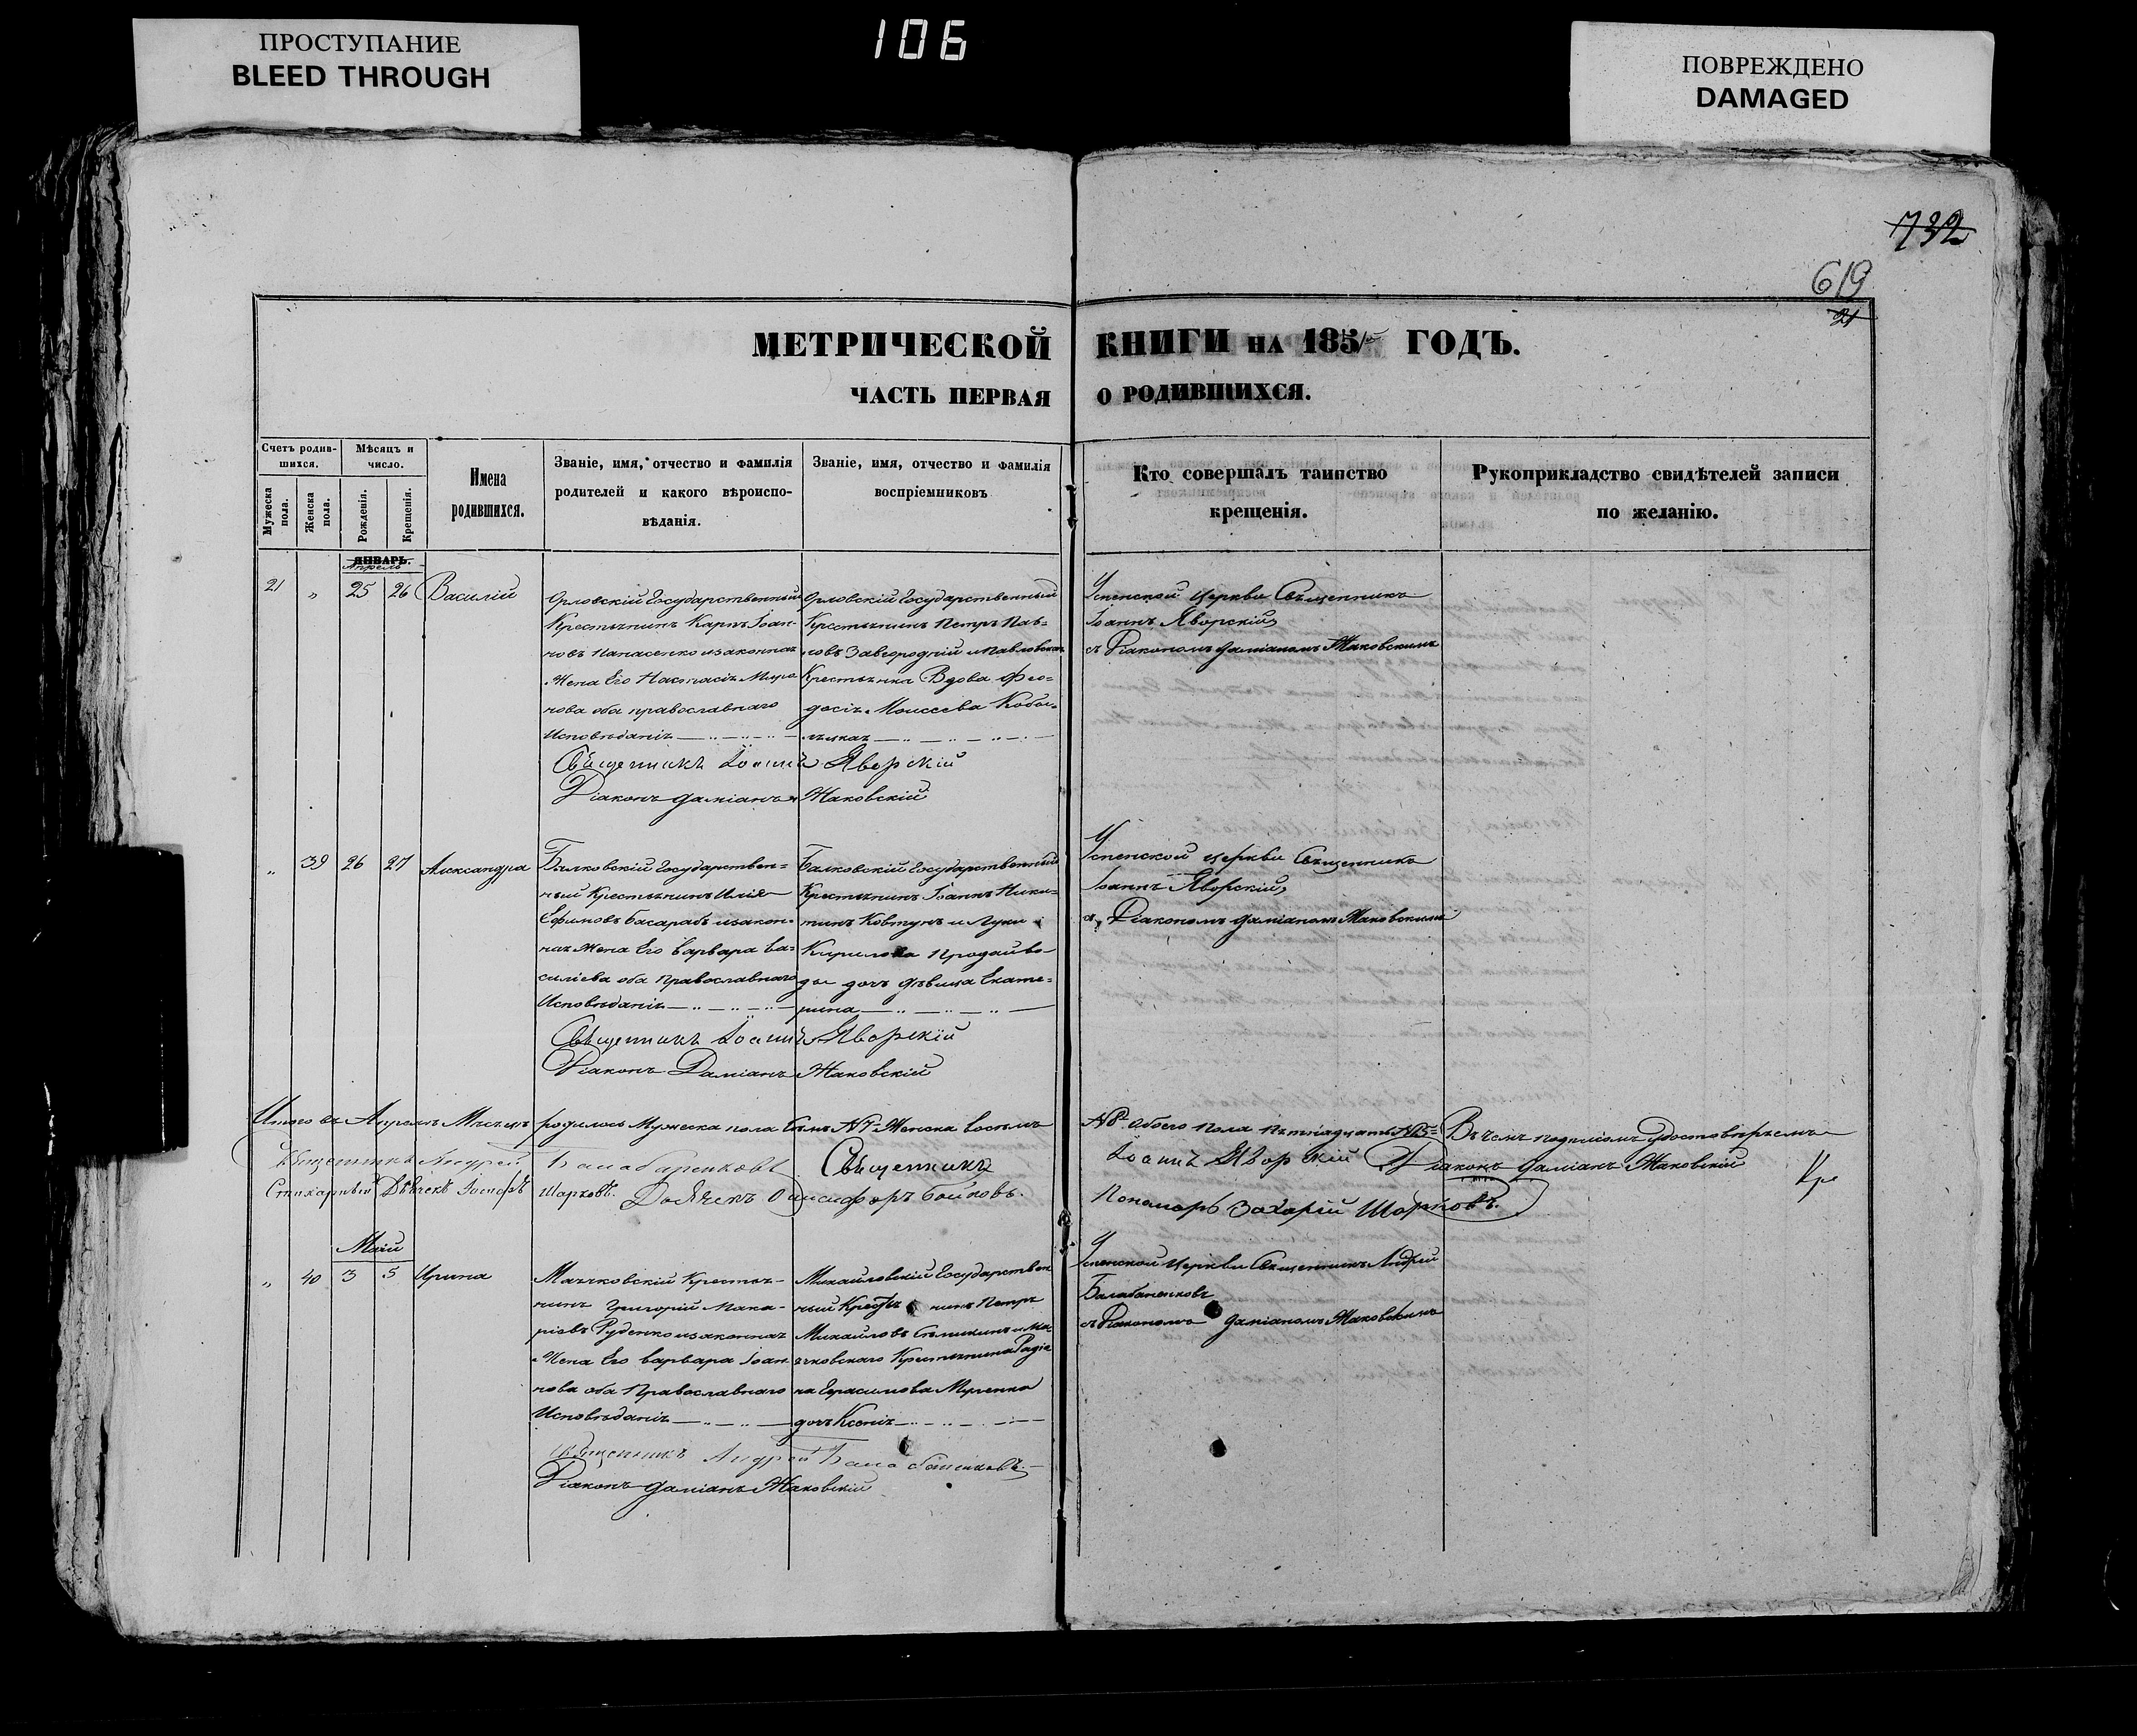 ПРОСТУПАНИЕ
BLEED THROUGH
106
ПОВРЕЖДЕНО
DAMAGED
732
619
21
МЕТРИЧЕСКОЙ КНИГИ НА 185 ГОДЪ.
ЧАСТЬ ПЕРВАЯ О РОДИВШИХСЯ.
Счетъ родив-
шихся.
Мужеска пола.
Женска пола.
Мѣсяцъ и
число.
Рожденія.
Крещенія.
Имена
родившихся.
Званіе, имя, отчество и фамилія
родителей и какого вѣроиспо-
вѣданія.
Званіе, имя, отчество и фамилія
воспріемниковъ
Кто совершалъ таинство
крещенія.
Рукоприкладство свидѣтелей записи
по желанію.
ЯНВАРЬ.
Апрель
21 „ 25 26 Василій
Орловскій Государственный
Крестьянинъ Карпъ Іоан-
новъ Панасенко изаконная
Жена Его Настасія Миро
нова оба православнаго
Исповѣданія
Орловскій Государственный
Крестьянинъ Петръ Пав=
ловъ Завгородній и Павловская
Крестьянка Вдова Фео=
досія Моисеева
Успенской Церкви Священникъ
Іоаннъ Яворскій
съ Діакономъ Даміаномъ Жаковскимъ
Священникъ Іоаннъ Яворскій
Діаконъ Даміанъ Жаковскій
„ 39 26 27 Александра
Балковскій Государствен=
ный Крестьянинъ Илія
Ефимовъ Басарабъ изакон-
ная Жена Его Варвара Ва=
силіева оба Православнаго
Исповѣданія
Балковскій Государственный
Крестьянинъ Іоаннъ Ники=
тинъ Ковтунъ и Луки
Кирилова Продайво-
ды дочь дѣвица Екате=
рина
Успенской церкви Священникъ
Іоаннъ Яворскій
съ Діакономъ Даміаномъ Жаковскимъ
Священникъ Іоаннъ Яворскій
Діаконъ Даміанъ Жаковскій
Итого въ Апрелѣ Месяцѣ родилось Мужеска пола Семь №7= Женска восемь №8= Обоего пола Пятнадцать №15= Въ чемъ подписомъ удостовѣряемъ
Священникъ Андрей Балабаненковъ Священникъ Іоаннъ Яворскій Діаконъ Даміанъ Жаковскій
Стихарный Дьячекъ Іосифъ Шарковъ. Дьячекъ Онисифоръ Бойковъ. Пономарь Захарій Шарковъ.
Май
„ 40 3 5 Ирина
Маячковскій Крестья-
нинъ Григорій Мака-
ріевъ Руденко изаконная
Жена Его Варвара Іоан
нова оба Православнаго
Исповѣданія
Михайловскій Государствен
ный Крестьянинъ Петръ
Михайловъ и Ма
ячковскаго Крестьянина Радіо
на Герасимова
дочь Ксенія
Успенской Церкви Священникъ Андрей
Балабаненковъ
съ Діакономъ Даміаномъ Жаковскимъ
Священникъ Андрей Балабаненковъ
Діаконъ Даміанъ Жаковскій